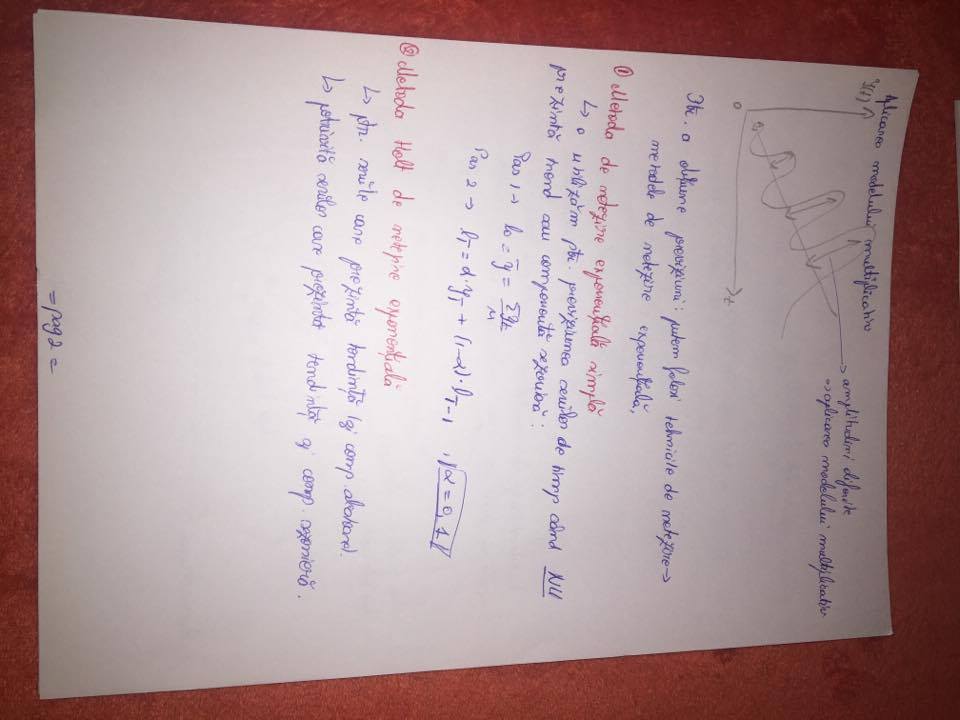 Aplicarea modelului multiplicativ
y(t)
→ amplitudini diferite
⇒ aplicarea modelului multiplicativ
0
t
Ptr. a obține previziuni: putem folosi tehnicile de netezire →
metodele de netezire exponențială,
① Metoda de netezire exponențială simplă
↳ o utilizăm ptr. previziunea seriilor de timp când NU
prezintă trend sau componentă sezonieră:
Pas 1 → l₀ = ȳ = Σyt / n
Pas 2 → lT = α·yT + (1-α)·lT-1, α = 0,1
② Metoda Holt de netezire exponențială
↳ ptr. seriile care prezintă tendință și comp.
↳ potrivită seriilor care prezintă tendință și comp. sezonieră.
= pag 2 =